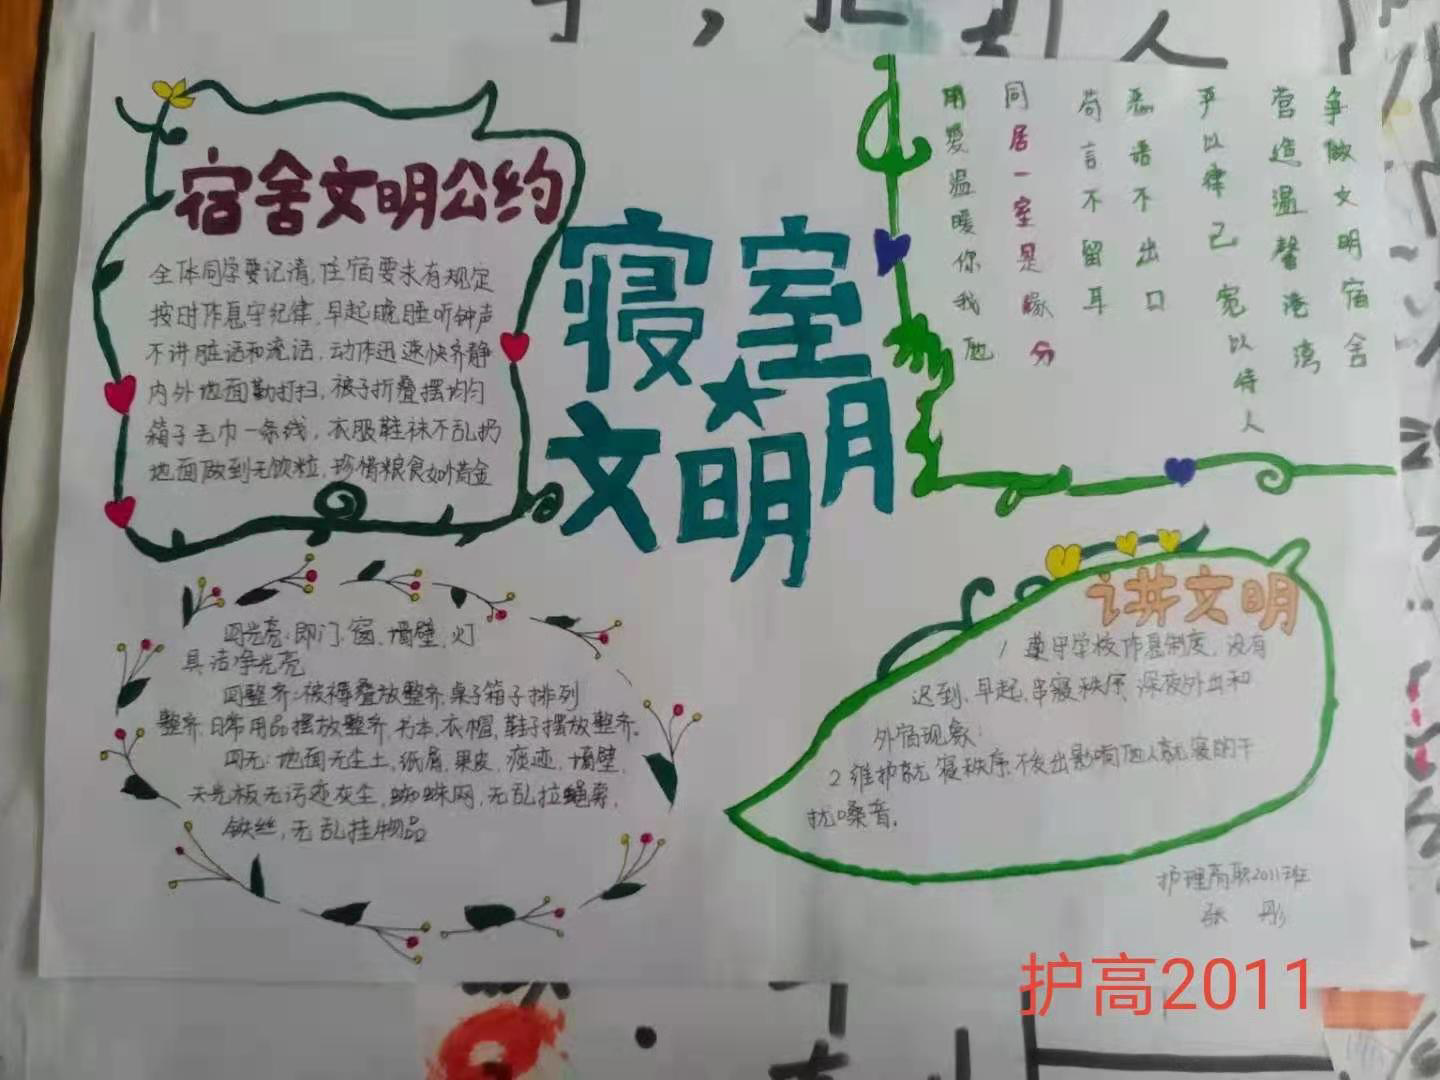 宿舍文明公约
全体同学要记清,住宿要求有规定
按时作息守纪律,早起晚睡听钟声
不讲脏话和流话,动作迅速快齐静
内外地面勤打扫,被子折叠摆均匀
箱子毛巾一条线,衣服鞋袜不乱扔
地面做到无饮粒,珍惜粮食如惜金
寝室
文明月
争做文明宿舍
营造温馨港湾
严以律己宽以待人
恶语不出口
苟言不留耳
同居一室是缘分
用爱温暖你我他
四光亮:即门、窗、墙壁、灯
具洁净光亮
四整齐:被褥叠放整齐,桌子箱子排列
整齐,日常用品摆放整齐,书本,衣帽,鞋子摆放整齐。
四无:地面无尘土,纸屑,果皮,痰迹,墙壁,
天光板无污迹灰尘,蜘蛛网,无乱拉绳索,
铁丝,无乱挂物品
讲文明
1 遵守学校作息制度,没有
迟到、早起、串寝秩序、深夜外出和
外宿现象;
2 维护就寝秩序,不发出影响他人就寝的干
扰噪音。
护理高职2011班
张 彤
护高2011